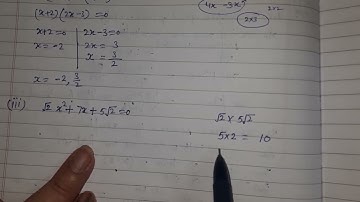 (x+2)(2x-3)=0
x+2=0 | 2x-3=0
x=-2 | 2x=3
x=3/2
x=-2, 3/2
(iii) √2 x²+7x+5√2=0
4x -3x
2x3
√2 x 5√2
5x2 = 10